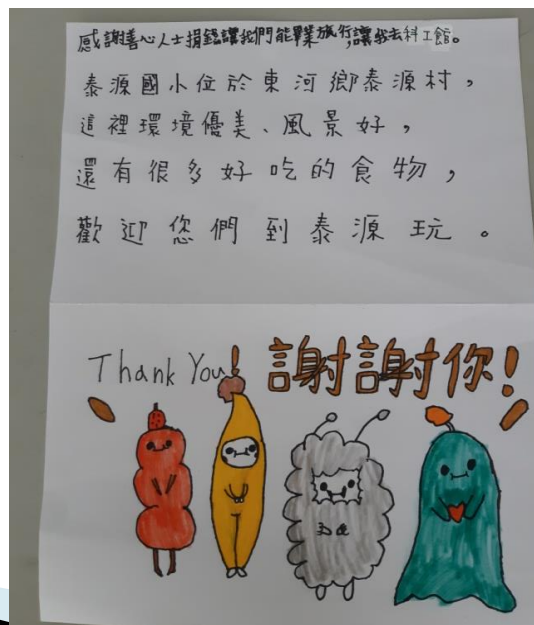 感謝善心人士捐錢讓我們能畢業旅行,讓我去科工館。
泰源國小位於東河鄉泰源村,
這裡環境優美、風景好,
還有很多好吃的食物,
歡迎您們到泰源玩。
Thank You! 謝謝你!